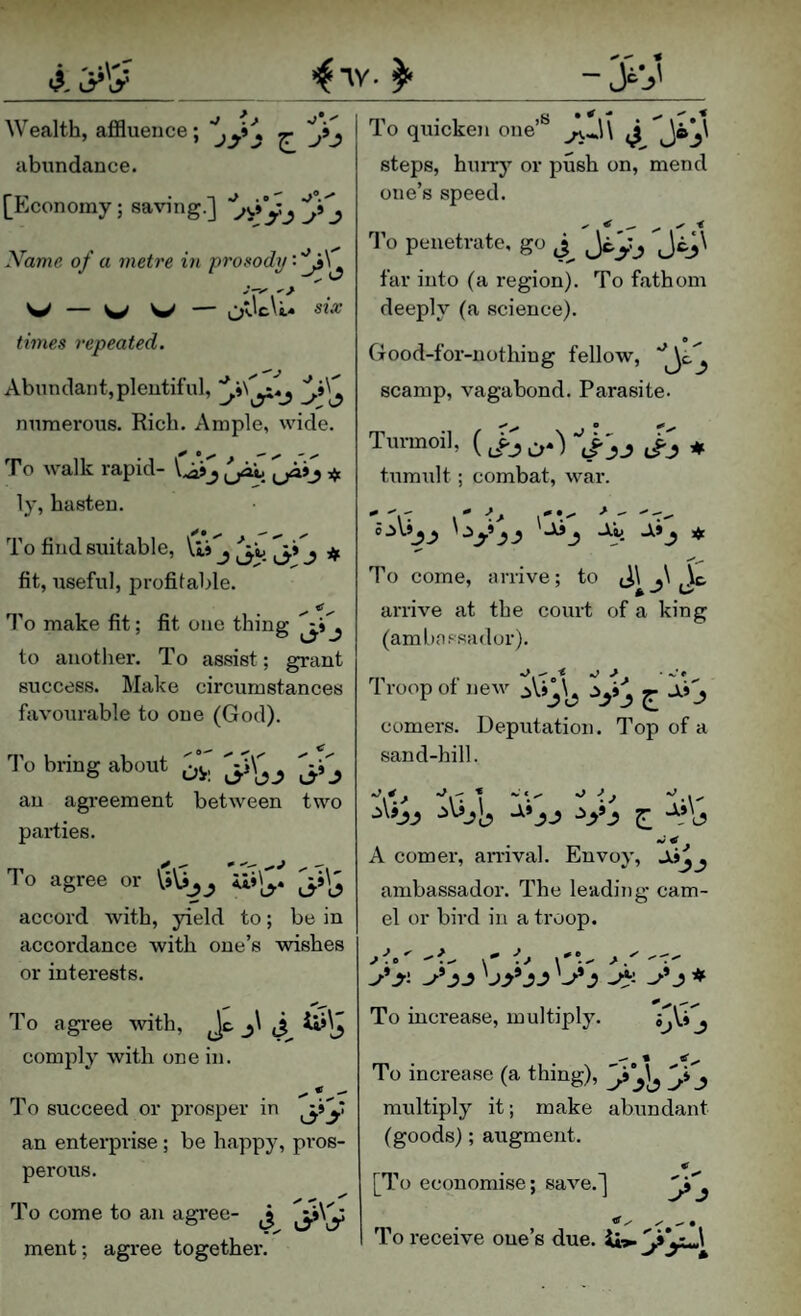 توافق في ﴿ ٨٧٠ ﴾ اوغل -
To quicken one's أَوْغَلَ فِي السَّيْرِ
steps, hurry or push on, mend
one's speed.
To penetrate, go أَوْغَلَ وَتَوَغَّلَ فِي
far into (a region). To fathom
deeply (a science).
Good-for-nothing fellow, وَغْلٌ
scamp, vagabond. Parasite.
Turmoil, (وَغَى وَوَغْيٌ (مِن وَغَى *
tumult; combat, war.
* وَفَدَ يَفِدُ وَفْدًا وَوُفُودًا وَوِفَادَةً
To come, arrive; to عَلَى أَوْ إِلَى
arrive at the court of a king
(ambassador).
Troop of new وَفْدٌ ج وُفُودٌ وَأَوْفَادٌ
comers. Deputation. Top of a
sand-hill.
وَافِدٌ ج وُفُودٌ وَوَفْدٌ وَأَوْفَادٌ وَوُفَّادٌ
A comer, arrival. Envoy, وَوُفَّدٌ
ambassador. The leading cam-
el or bird in a troop.
* وَفَرَ يَفِرُ وَفْرًا وَوُفُورًا وَوَفُرَ يَوْفُرُ
To increase, multiply. وَفَارَةً
To increase (a thing), وَفَّرَ وَأَوْفَرَ
multiply it; make abundant
(goods); augment.
[To economise; save.] وَفَّرَ
To receive one's due. إِسْتَوْفَرَ حَقَّهُ
Wealth, affluence; وَفْرٌ ج وُفُورٌ
abundance.
[Economy; saving.] وَفْرٌ وَتَوْفِيرٌ
Name of a metre in prosody: وَافِرٌ
مُفَاعَلَتُن ᴗ — ᴗ ᴗ — six
times repeated.
Abundant, plentiful, وَافِرٌ وَمُتَوَافِرٌ
numerous. Rich. Ample, wide.
To walk rapid- وَفَضَ يَفِضُ وَفْضًا *
ly, hasten.
To find suitable, وَفِقَ يَفِقُ وَفْقًا *
fit, useful, profitable.
To make fit; fit one thing وَفَّقَ
to another. To assist; grant
success. Make circumstances
favourable to one (God).
To bring about وَفَّقَ وَوَافَقَ بَيْنَ
an agreement between two
parties.
To agree or وَافَقَ مُوَافَقَةً وَوِفَاقًا
accord with, yield to; be in
accordance with one's wishes
or interests.
To agree with, وَافَقَهُ فِي أَوْ عَلَى
comply with one in.
To succeed or prosper in تَوَفَّقَ
an enterprise; be happy, pros-
perous.
To come to an agree- تَوَافَقَ فِي
ment; agree together.